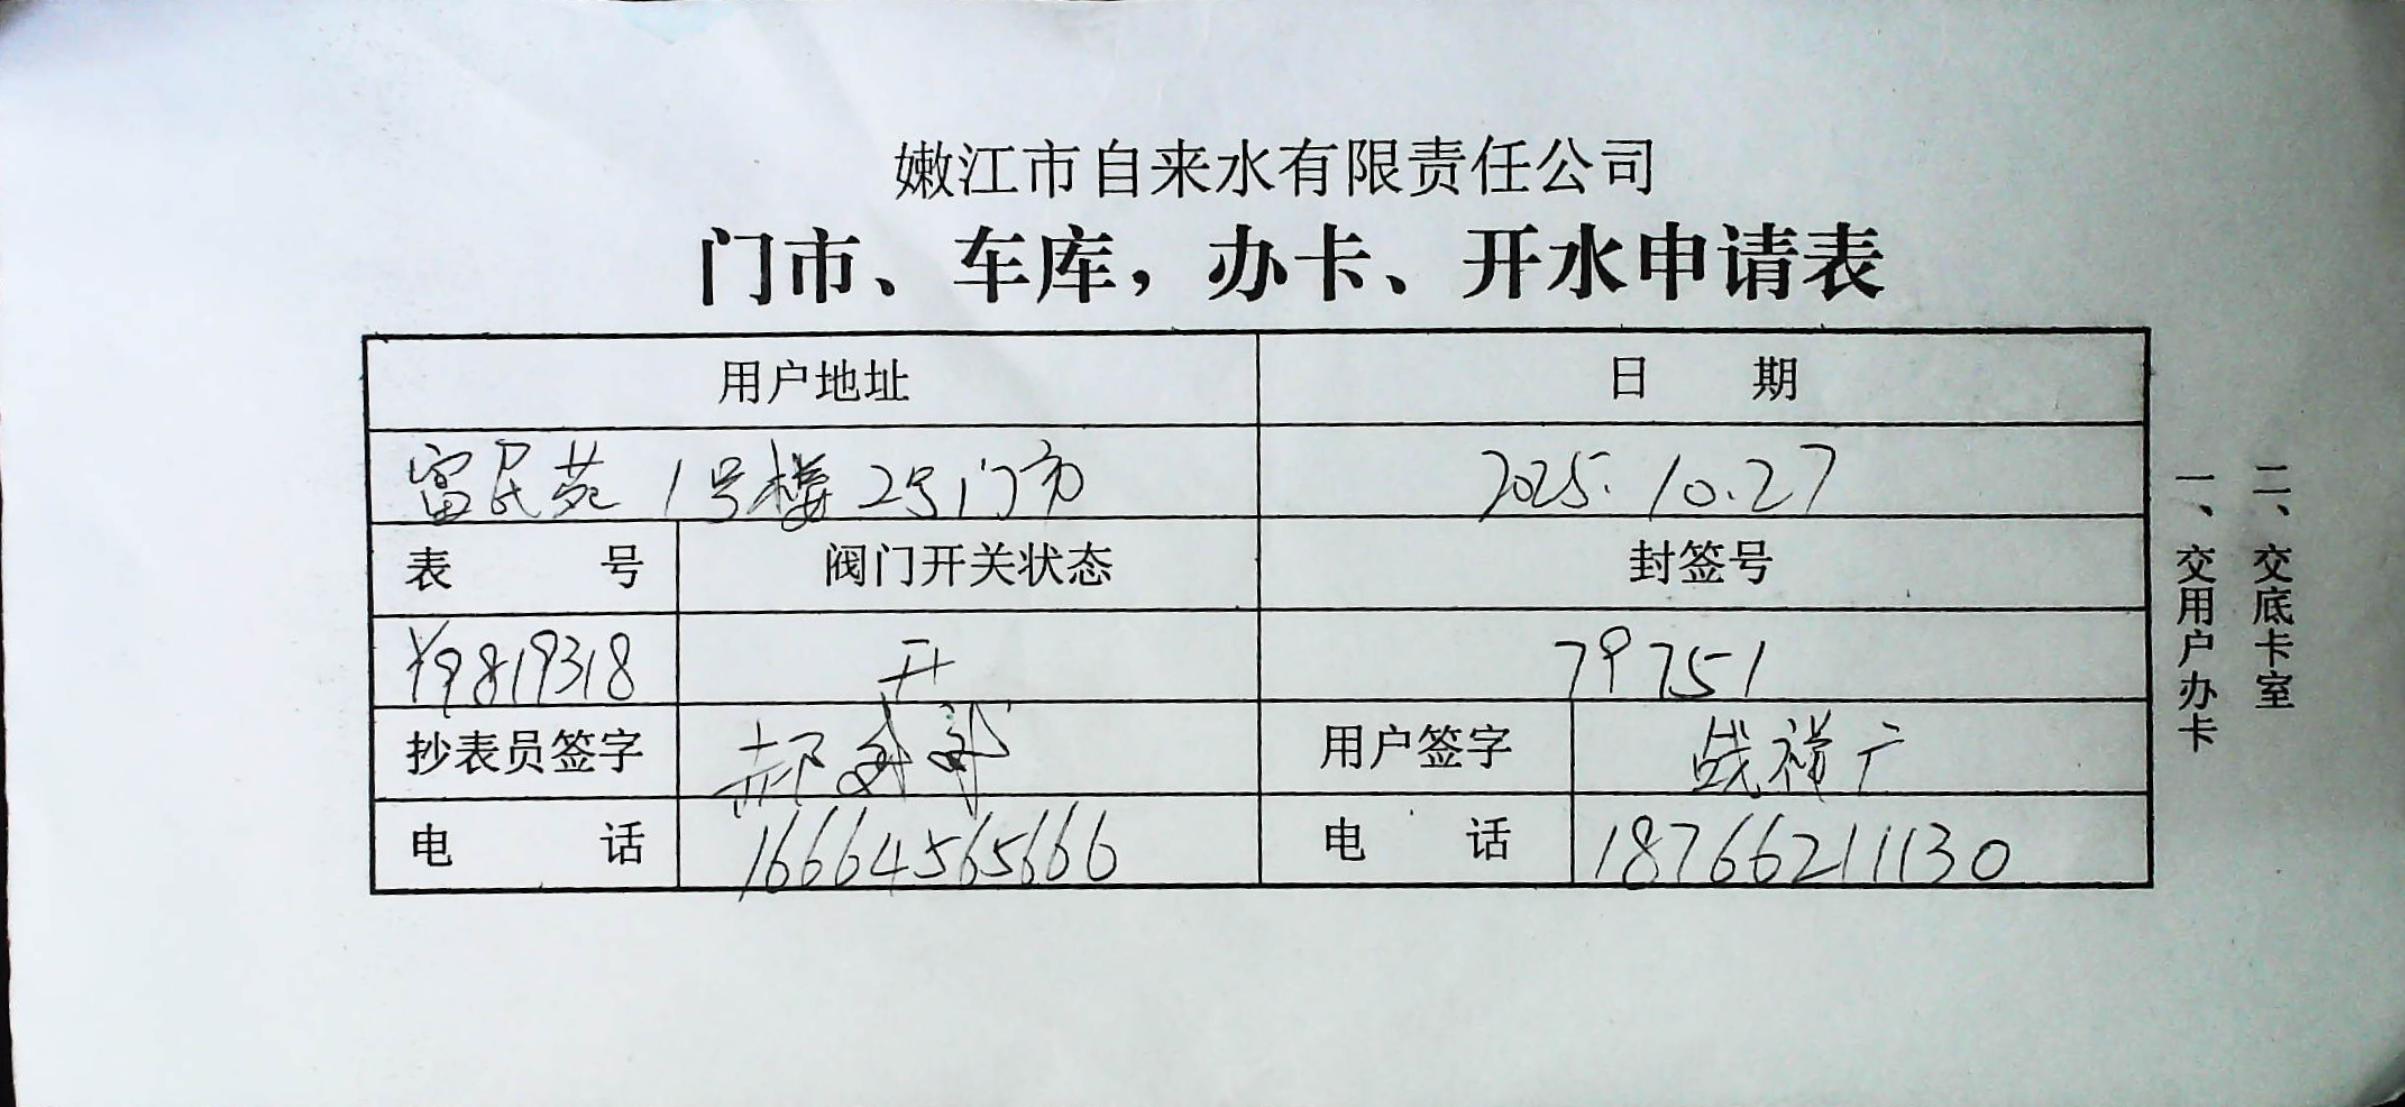 嫩江市自来水有限责任公司
门市、车库，办卡、开水申请表
用户地址 日 期
富民苑 1号楼 2号门市 2025.10.27
表 号 阀门开关状态 封签号
Y9819318 开 79751
抄表员签字 郝 用户签字 战祥广
电 话 16664565666 电 话 18766211130
一、交用户办卡
二、交底卡室